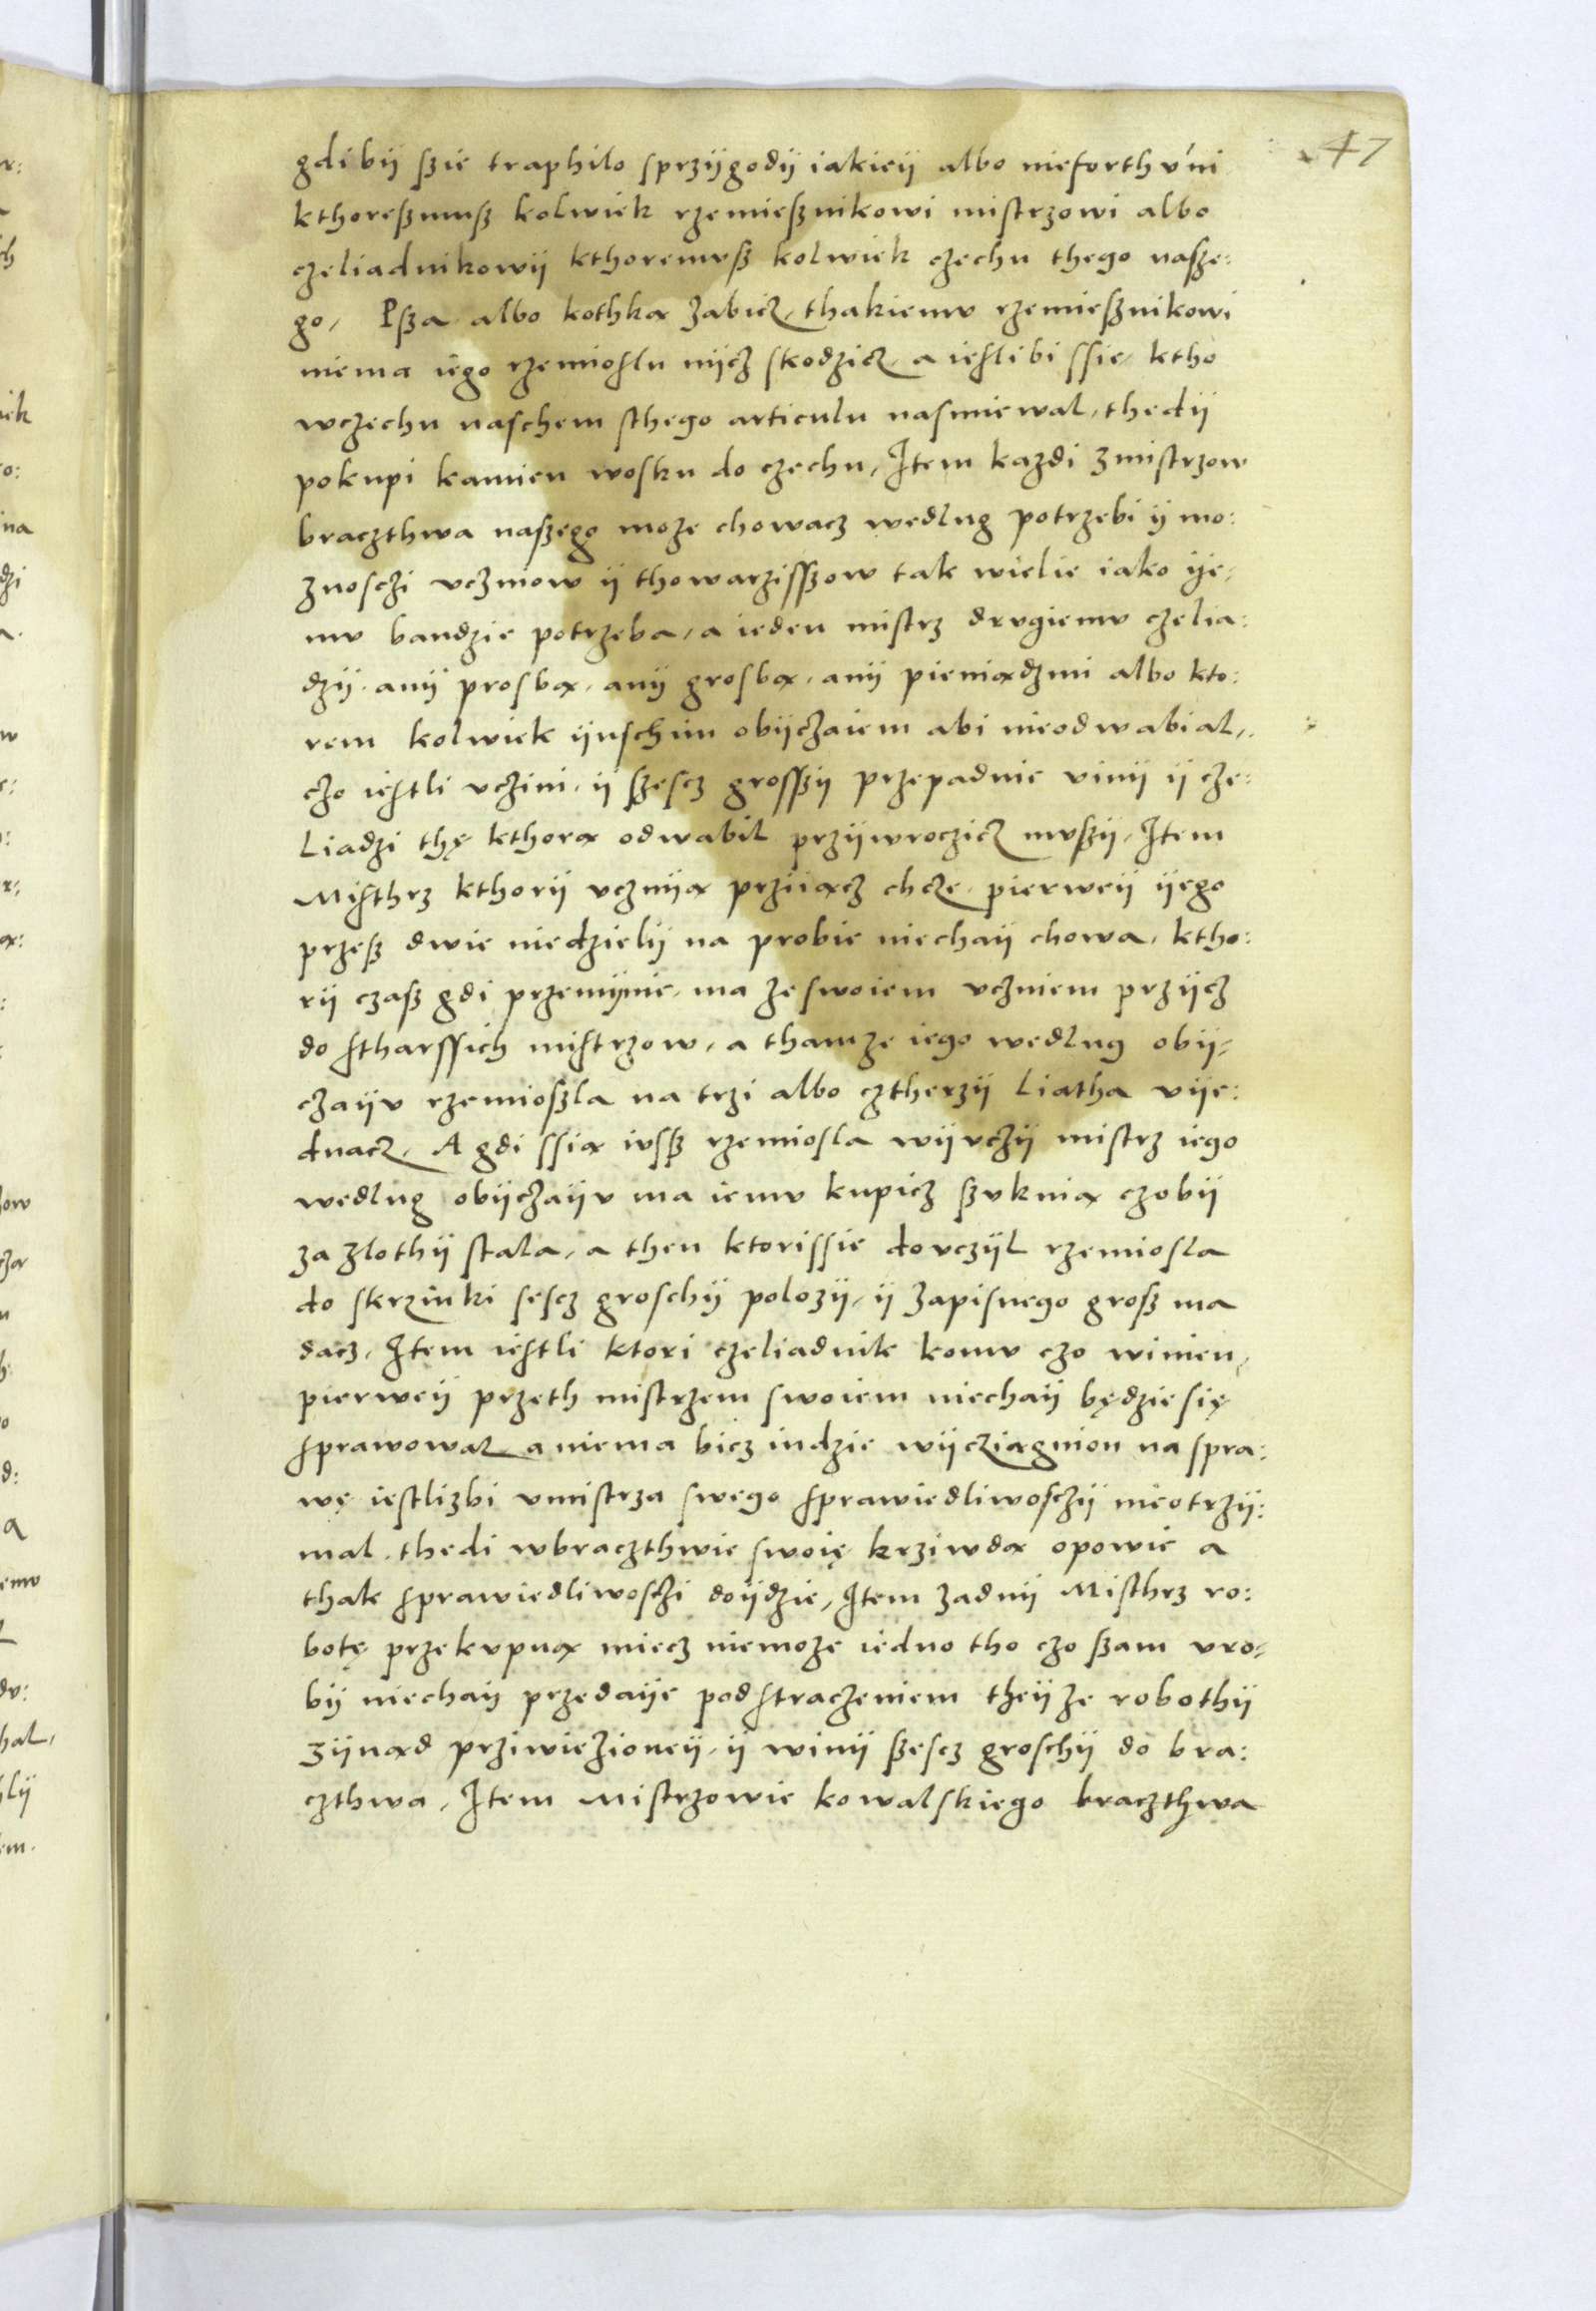 47
gdibÿ ſzie traphilo sprzÿgodÿ iakieÿ albo nieforthvni
kthoreſzmuſz kolwiek rzemieſznikowi mistrzowi albo
czeliadnikowÿ kthoremvſz kolwiek czechu thego naſze:
go, Pſza albo kothka zabicz, thakiemv rzemieſznikowi
niema iego rzemioslu nÿcz skodzicz, a ieslibi ſſie, ktho
wczechu naschem sthego articulu nasmiewal, thedÿ
pokupi kamien wosku do czechu, Item kazdi zmistrzow
braczthwa naſzego moze chowacz wedlug potrzebi ÿ mo:
znosczi vczniow ÿ thowarziſſzow tak wielie iako ÿe,
mv bandzie potrzeba, a ieden mistrz drvgiemv czelia:
dzÿ, anÿ prosbą, anÿ grosbą, anÿ pieniądzmi albo kto:
rem kolwiek ÿnschim obÿczaiem abi nieodwabial,
czo iestli vczini, ÿ ſzescz groſſzÿ przepadnie vinÿ ÿ cze:
liadzi thę kthorą odwabil przÿwroczicz mvſzÿ, Item
Misthrz kthorÿ vcznÿą prziiącz chcze, pierweÿ ÿego
przeſz dwie niedzielÿ na probie niechaÿ chowa, ktho:
rÿ czaſz gdi przemÿnie, ma ze swoiem vczniem przÿcz
do stharſſich mistrzow, a thamze iego wedlug obÿ,
czaÿv rzemioſzla na trzi albo cztherzÿ liatha vÿe:
dnacz, A gdi ſſią ivſſz rzemiosla wÿvczÿ mistrz iego
wedlug obÿczaÿv ma iemv kupicz ſzvknią czobÿ
za zlothÿ stala, a then ktoriſſie dovczÿl rzemiosla
do skrzinki sescz groschÿ polozÿ, ÿ zapisnego groſz ma
dacz, Item iestli ktori czeliadnik komv czo winien,
pierweÿ przeth mistrzem swoiem niechaÿ będzie się
sprawowal a niema bicz indzie wÿcziągnion na spra:
wę iestlizbi vmistrza swego sprawiedliwosczÿ nieotrzÿ:
mal, thedi wbraczthwie swoię krziwdą opowie a
thak sprawiedliwosczi doÿdzie, Item zadnÿ Misthrz ro:
botę przekvpną miecz niemoze iedno tho czo ſzam vro,
bÿ niechaÿ przedaÿe pod straczeniem theÿze robothÿ
zÿnąd prziwiezioneÿ, ÿ winÿ ſzescz groschÿ do bra:
czthwa, Item Mistrzowie kowalskiego braczthwa